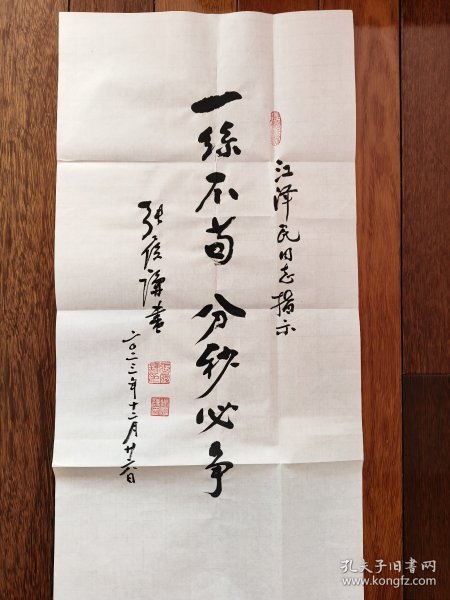 江泽民同志指示
一丝不苟 分秒必争
张彦謙書
二〇二三年十二月廿六日
孔夫子旧书网
www.kongfz.com